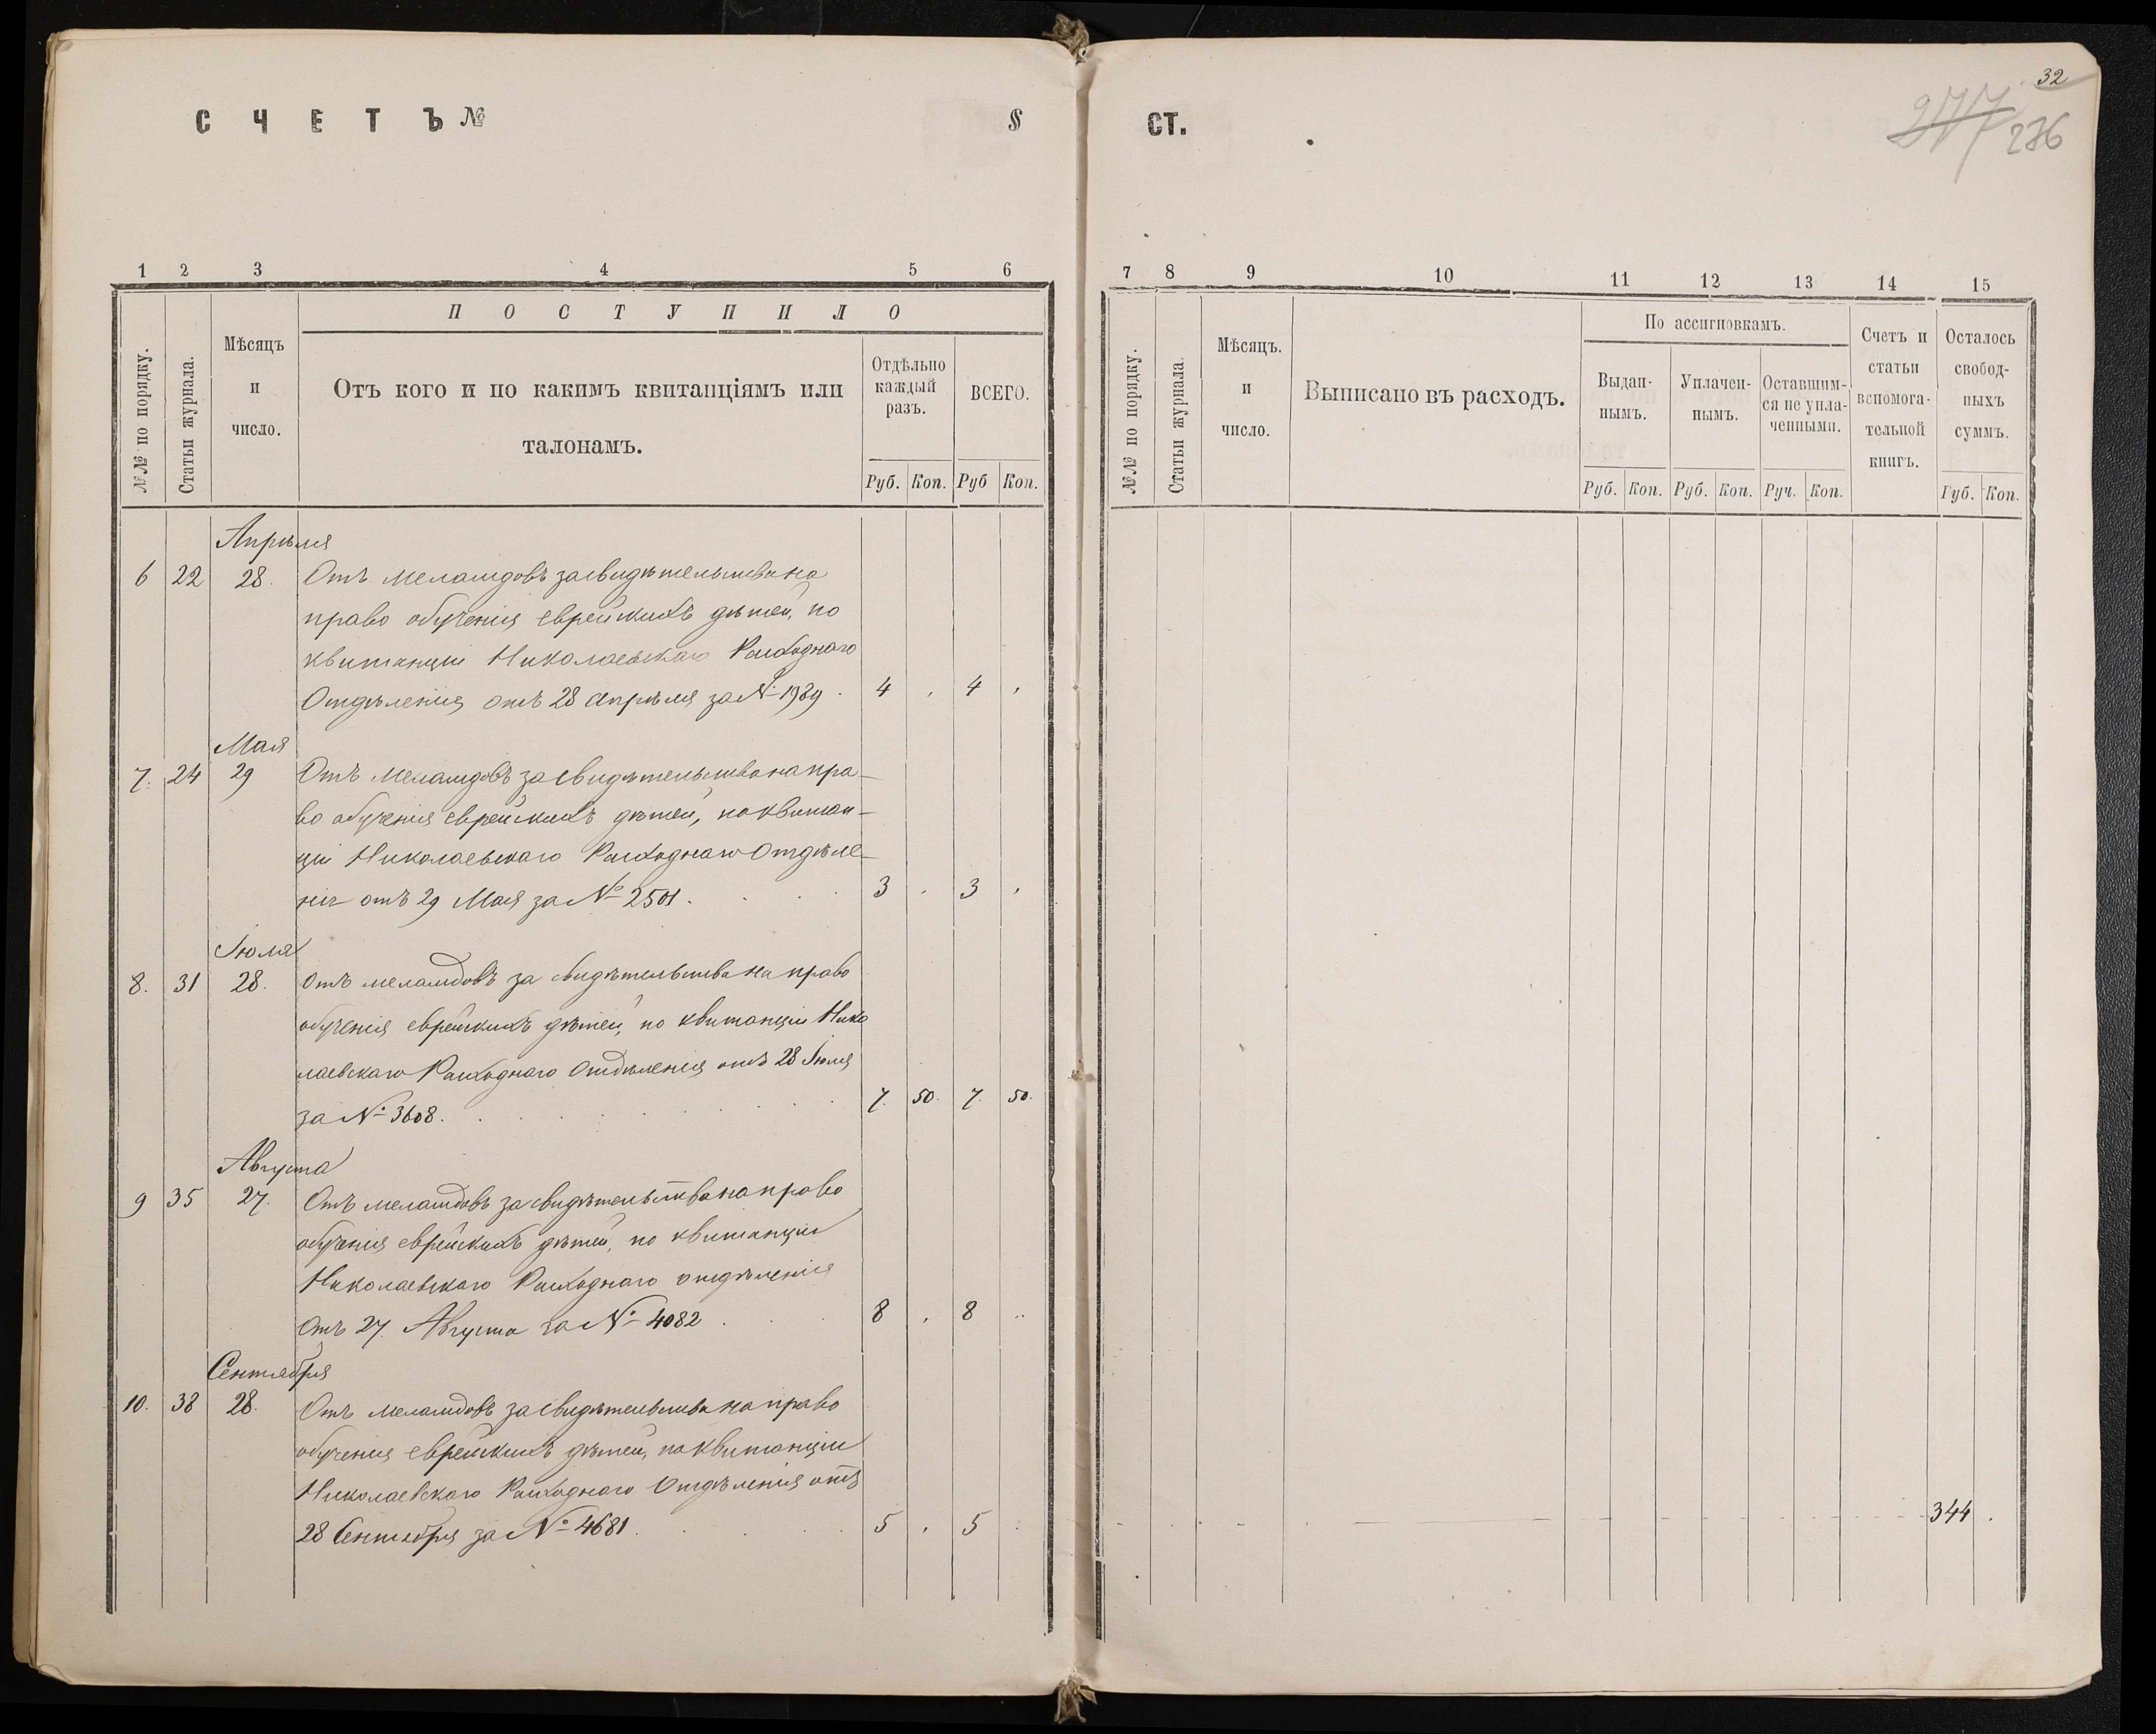 СЧЕТЪ №
§
СТ.
32
277
276
1 2 3 4 5 6
ПОСТУПИЛО
№№ по порядку.
Статьи журнала.
Мѣсяцъ
и
число.
Отъ кого и по какимъ квитанціямъ или
талонамъ.
Отдѣльно
каждый
разъ.
ВСЕГО.
Руб. Коп. Руб Коп.
Апрѣля
6 22 28. Отъ меламдовъ за свидѣтельства на
право обученія еврейскихъ дѣтей, по
квитанціи Николаевскаго Расходнаго
Отдѣленія отъ 28 Апрѣля за № 1989. 4 . 4 .
Мая
7. 24 29 Отъ меламдовъ за свидѣтельства на пра-
во обученія еврейскихъ дѣтей, по квитан-
ціи Николаевскаго Расходнаго Отдѣле-
нія отъ 29 Мая за № 2501. 3 . 3 .
Іюля
8. 31 28. Отъ меламдовъ за свидѣтельства на право
обученія еврейскихъ дѣтей, по квитанціи Нико
лаевскаго Расходнаго Отдѣленія отъ 28 Іюля
за № 3608. 7. 50. 7. 50.
Августа
9 35 27. Отъ меламдовъ за свидѣтельства на право
обученія еврейскихъ дѣтей, по квитанціи
Николаевскаго Расходнаго отдѣленія
Отъ 27 Августа за № 4082 8 . 8 ..
Сентября
10. 38 28. Отъ меламдовъ за свидѣтельства на право
обученія еврейскихъ дѣтей, по квитанціи
Николаевскаго Расходнаго Отдѣленія отъ
28 Сентября за № 4681. 5 . 5 .
7 8 9 10 11 12 13 14 15
№№ по порядку.
Статьи журнала.
Мѣсяцъ.
и
число.
Выписано въ расходъ.
По ассигновкамъ.
Выдан-
нымъ.
Уплачен-
нымъ.
Оставшим-
ся не упла-
ченными.
Счетъ и
статьи
вспомога-
тельной
книгъ.
Осталось
свобод-
ныхъ
суммъ.
Руб. Коп. Руб. Коп. Руч. Коп. Руб. Коп.
344 .